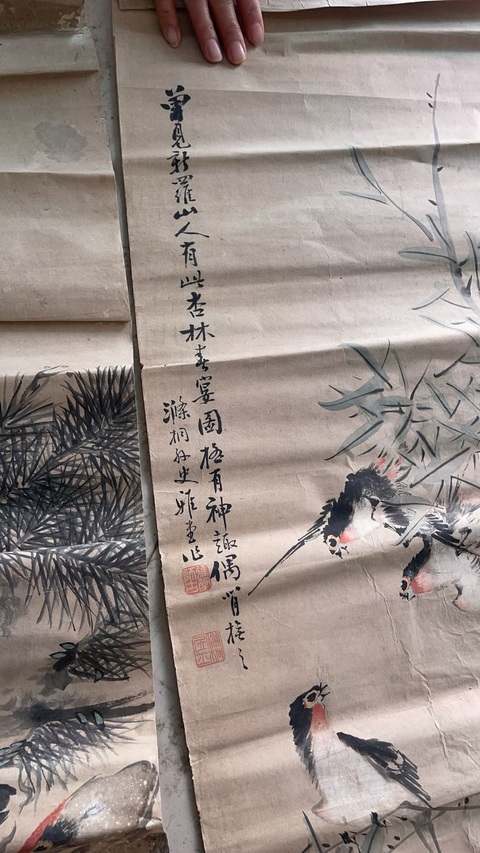 曾見新羅山人有此杏林春宴圖極有神趣偶背橅之
滌桐外史雅堂作